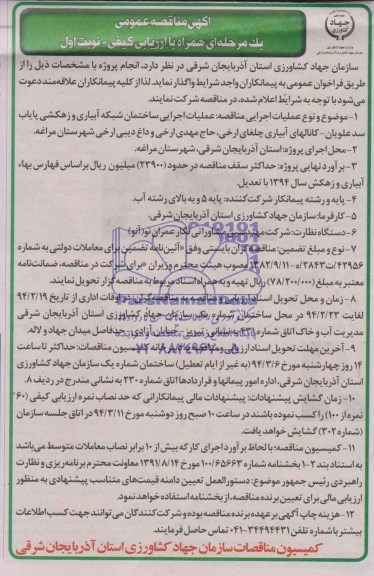 آگهی مناقصه عمومی
یک مرحله‌ای همراه با ارزیابی کیفی - نوبت اول
سازمان جهاد کشاورزی استان آذربایجان شرقی در نظر دارد، انجام پروژه با مشخصات ذیل را از
طریق فراخوان عمومی به پیمانکاران واجد شرایط واگذار نماید. لذا از کلیه پیمانکاران علاقه‌مند دعوت
می‌شود با توجه به شرایط اعلام شده، در مناقصه شرکت نمایند.
۱- موضوع و نوع عملیات اجرایی مناقصه: عملیات اجرایی ساختمان شبکه آبیاری و زهکشی پایاب
سد علویان - کانالهای آبیاری چلغای ارخی، حاج مهدی ارخی و داغ دیبی ارخی شهرستان مراغه.
۲- محل اجرای پروژه: استان آذربایجان شرقی، شهرستان مراغه.
۳- برآورد نهایی پروژه: حداکثر سقف مناقصه در حدود (۲۳۹۰۰) میلیون ریال بر اساس فهارس بهاء
آبیاری و زهکشی سال ۱۳۹۴ با تعدیل.
۴- پایه و رشته پیمانکار شرکت‌کننده: پایه ۵ و به بالای رشته آب.
۵- کارفرما: سازمان جهاد کشاورزی استان آذربایجان شرقی.
۶- دستگاه نظارت: شرکت مهندسی مشاور آنی کار عمران نو (آنو)
۷- نوع و مبلغ تضمین: مناقصه‌گران بایستی وفق «آئین‌نامه تضمین برای معاملات دولتی به شماره
مصوب هیئت محترم وزیران» برای شرکت در مناقصه، ضمانت‌نامه
معتبر به مبلغ (۷۸۲/۰۰۰/۰۰۰) ریال تهیه و به همراه اسناد مربوط به مناقصه‌گزار تحویل نمایند.
۸- زمان و محل تحویل اسناد ارزیابی و مناقصه به مناقصه‌گران: در اوقات اداری از تاریخ ۹۴/۲/۱۹
لغایت ۹۴/۲/۲۳ در محل ساختمان شماره یک سازمان جهاد کشاورزی استان آذربایجان شرقی،
مدیریت آب و خاک اتاق شماره به نشانی: تبریز، خیابان آزادی، حدفاصل میدان جهاد و لاله.
۹- آخرین مهلت تحویل اسناد ارزیابی و مناقصه به دبیرخانه کمیسیون مناقصات: حداکثر تا ساعت
۱۴ روز چهارشنبه مورخ ۹۴/۳/۶ (به غیر از ایام تعطیل) ساختمان شماره یک سازمان جهاد کشاورزی
استان آذربایجان شرقی، اداره امور پیمانها و قراردادها اتاق شماره ۲۳۰ به نشانی مندرج در ردیف ۸.
۱۰- زمان گشایش پیشنهادات: پیشنهادات مالی پیمانکارانی که حد نصاب نمره ارزیابی کیفی (۶۰
نمره از ۱۰۰) را کسب نموده باشند در ساعت ۱۰ صبح روز دوشنبه مورخ ۹۴/۳/۱۱ در اتاق جلسه سازمان
(شماره ۳۰۲) گشایش خواهد یافت.
۱۱- کمیسیون مناقصه: با لحاظ برآورد اجرای کار که بیش از ۱۰ برابر نصاب معاملات متوسط می‌باشد
به استناد بند ۲-۱ بخشنامه شماره ۱۰۰/۶۵۶۶۳ مورخ ۱۳۹۱/۸/۱۴ معاونت محترم برنامه‌ریزی و نظارت
راهبردی رئیس جمهور موضوع: دستورالعمل تعیین دامنه قیمت‌های متناسب پیشنهادی به منظور
ارزیابی مالی برای تعیین برنده مناقصه، از بخشنامه استفاده خواهد نمود.
۱۲- هزینه چاپ آگهی بر عهده برنده مناقصه بوده و شرکت‌کنندگان می‌توانند جهت کسب اطلاعات
بیشتر با شماره تلفن ۳۴۴۹۴۴۳۱-۰۴۱ تماس حاصل فرمایند.
کمیسیون مناقصات سازمان جهاد کشاورزی استان آذربایجان شرقی